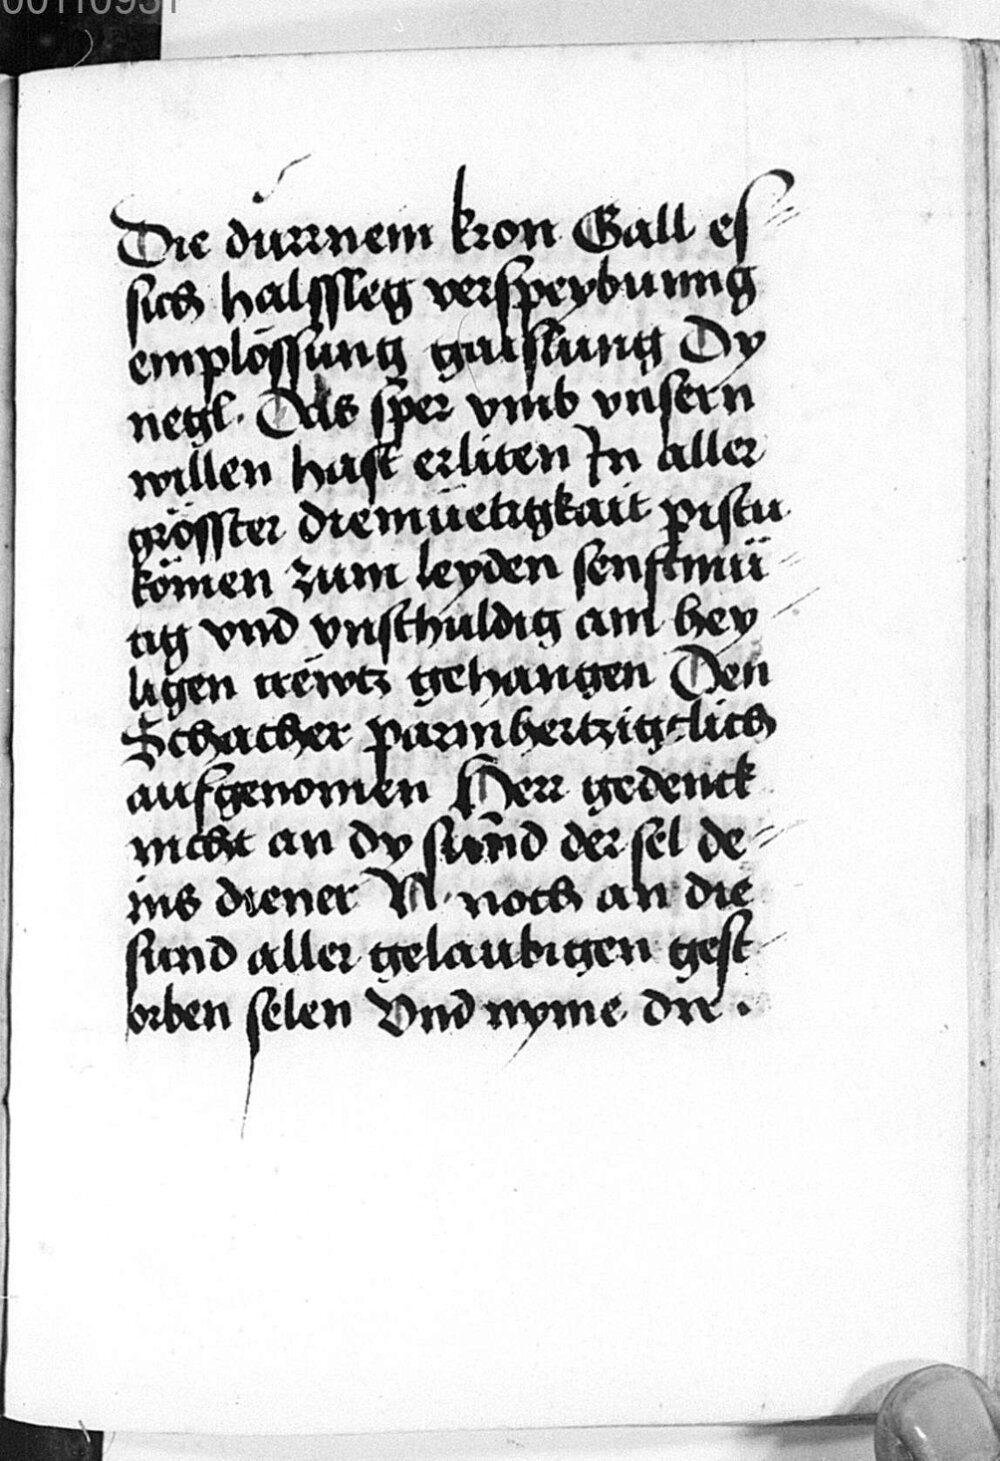 00110931
Die durrnein kron Gall es=
sich halssleg verspeybunng
emplössung gaislung Dy
negl. Das sper vmb vnsern
willen hast erliten In aller
grösster diemüetigkait pistu
kömen zum leyden senftmü=
tig vnd vnschuldig am hey=
ligen crewtz gehangen Den
Schacher parmhertzigclich
aufgenomen Herr gedenck
nicht an dy sünnd der sel de=
ins diener N. noch an die
sünd aller gelaubigen gest=
orben selen Vnd nyme die.